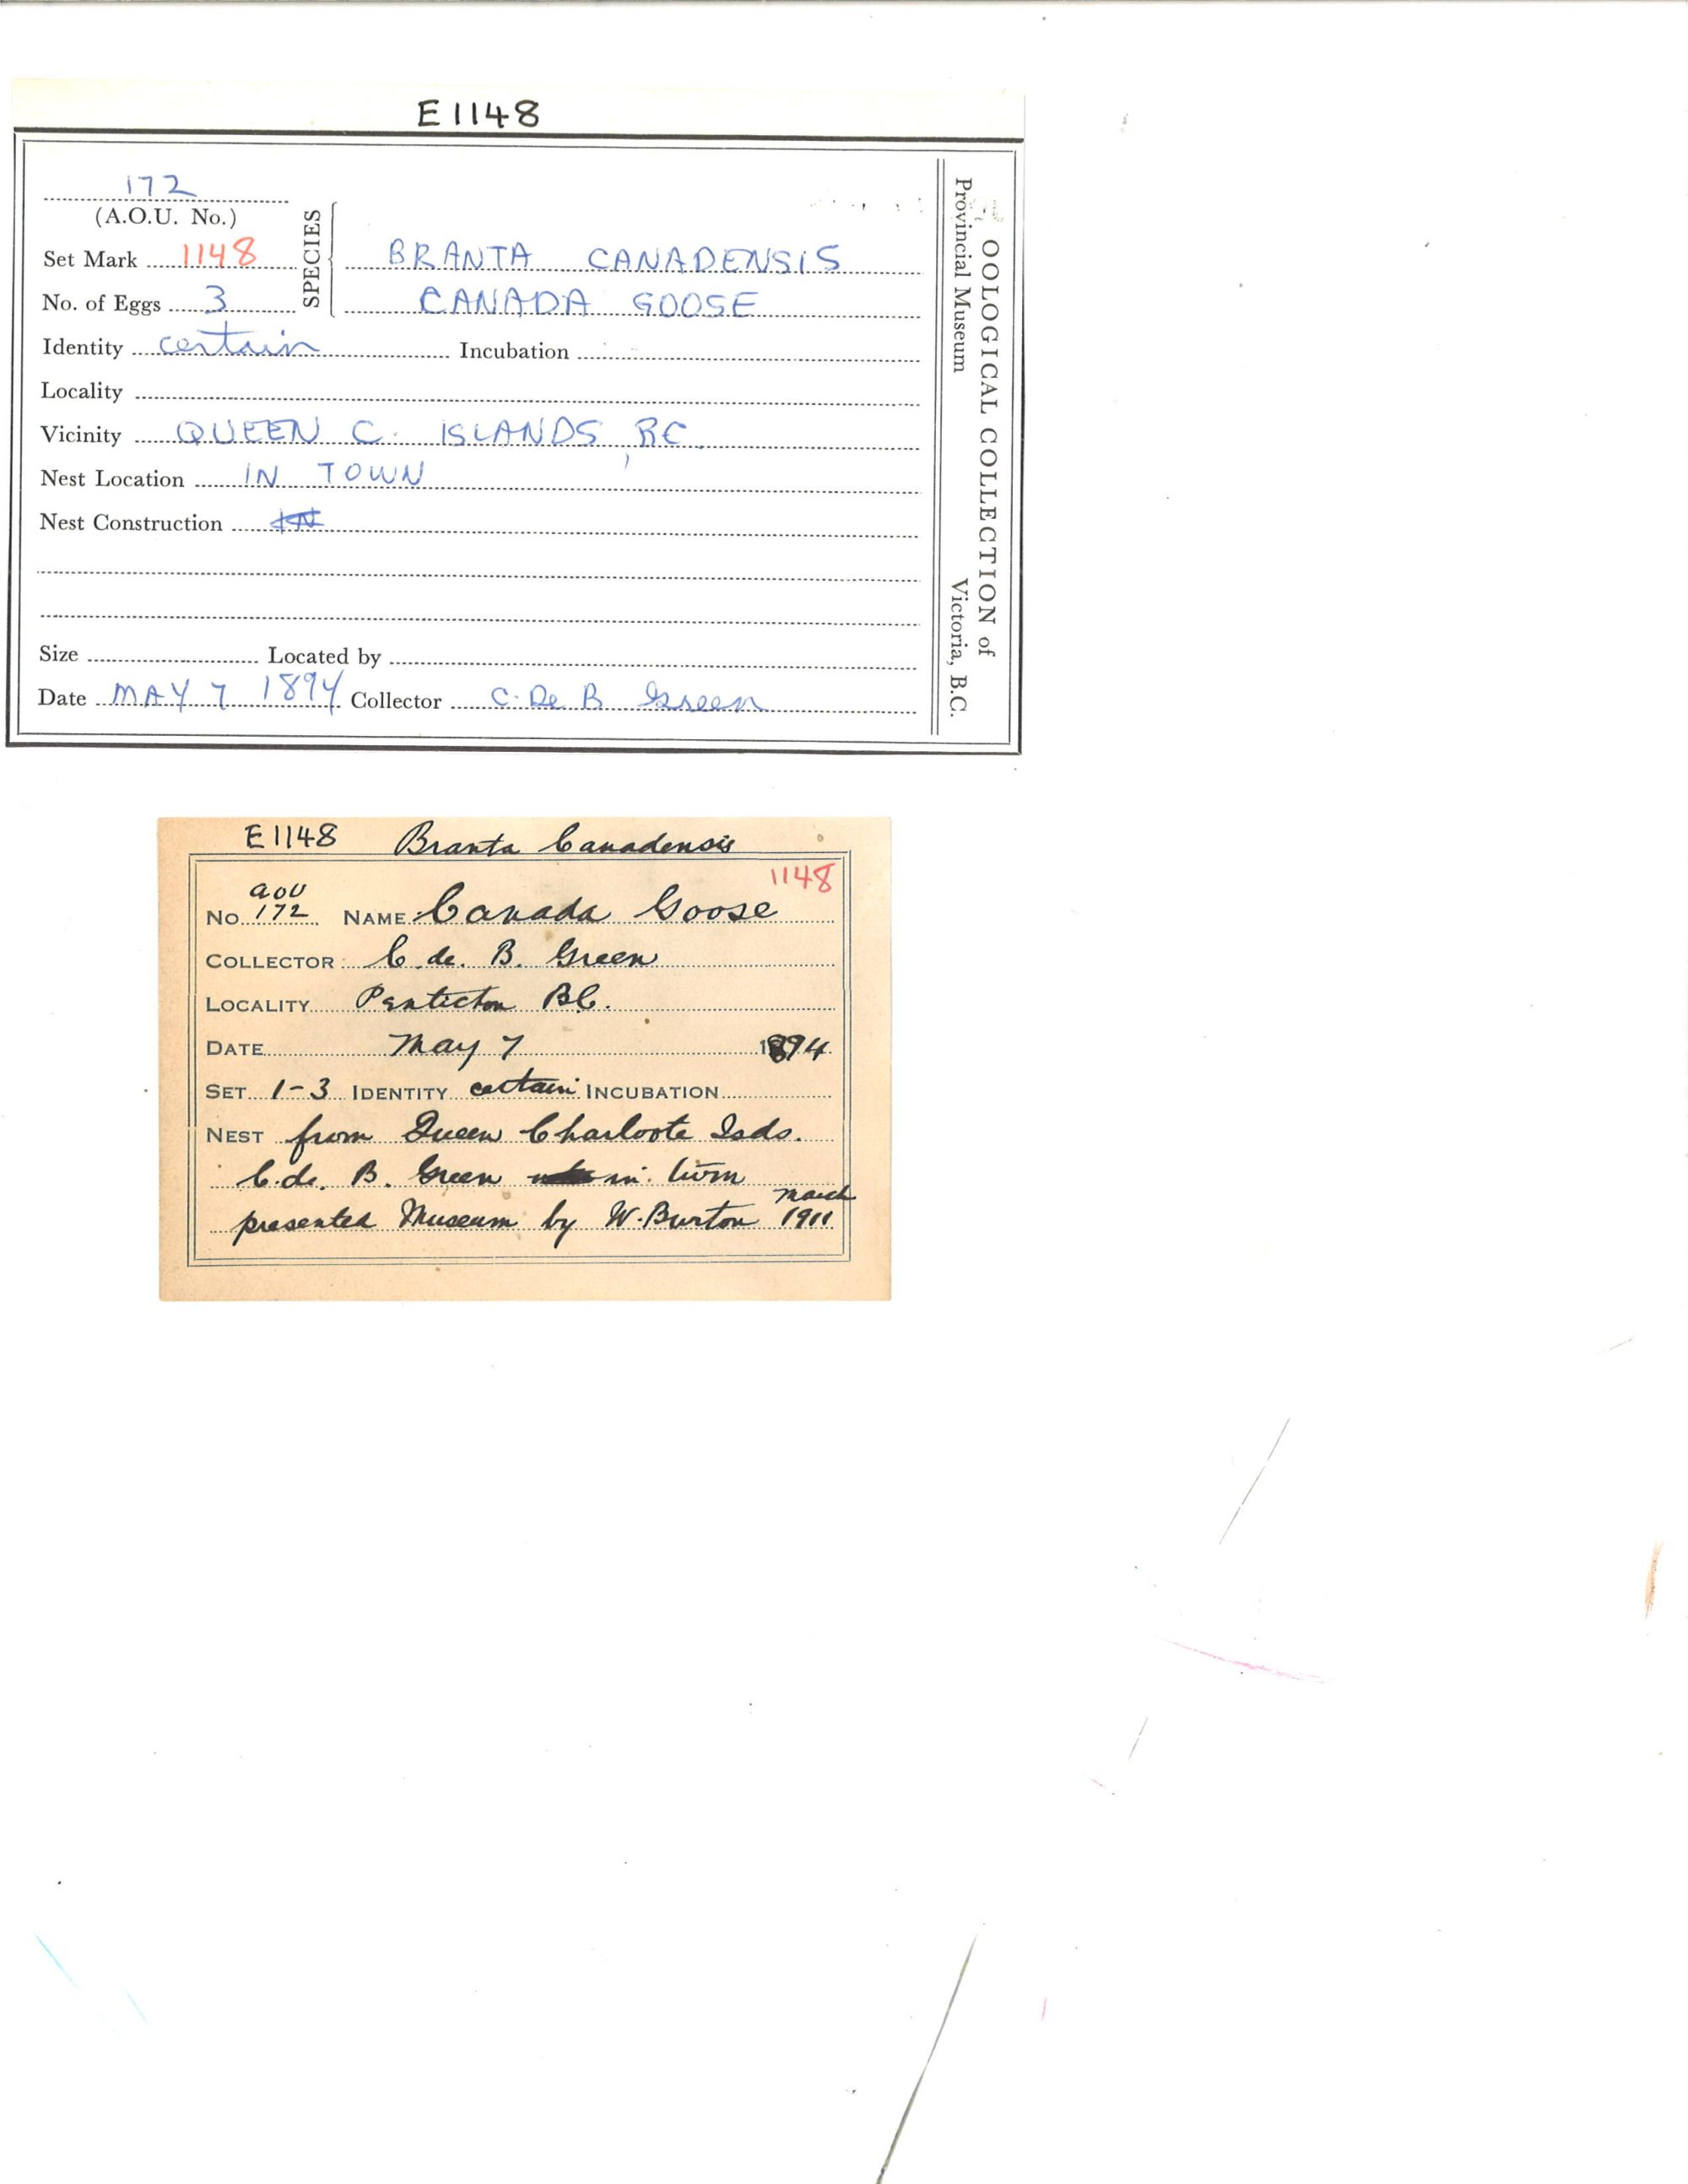 E 1148
172
(A.O.U. No.)
Set Mark 1148
No. of Eggs 3
SPECIES
BRANTA CANADENSIS
CANADA GOOSE
Identity certain Incubation
Locality
Vicinity QUEEN C. ISLANDS, BC
Nest Location IN TOWN
Nest Construction IN
Size Located by
Date MAY 7 1894 Collector C. De B Green
OOLOGICAL COLLECTION of
Provincial Museum Victoria, B.C.
E1148 Branta Canadensis
1148
AOU
No. 172 NAME: Canada Goose
COLLECTOR: C. de. B. Green
LOCALITY Penticton BC.
DATE May 7 1894
SET 1-3 IDENTITY certain INCUBATION
NEST from Queen Charloote Isds.
C. de. B. Green in turn
presented Museum by W. Burton March 1911